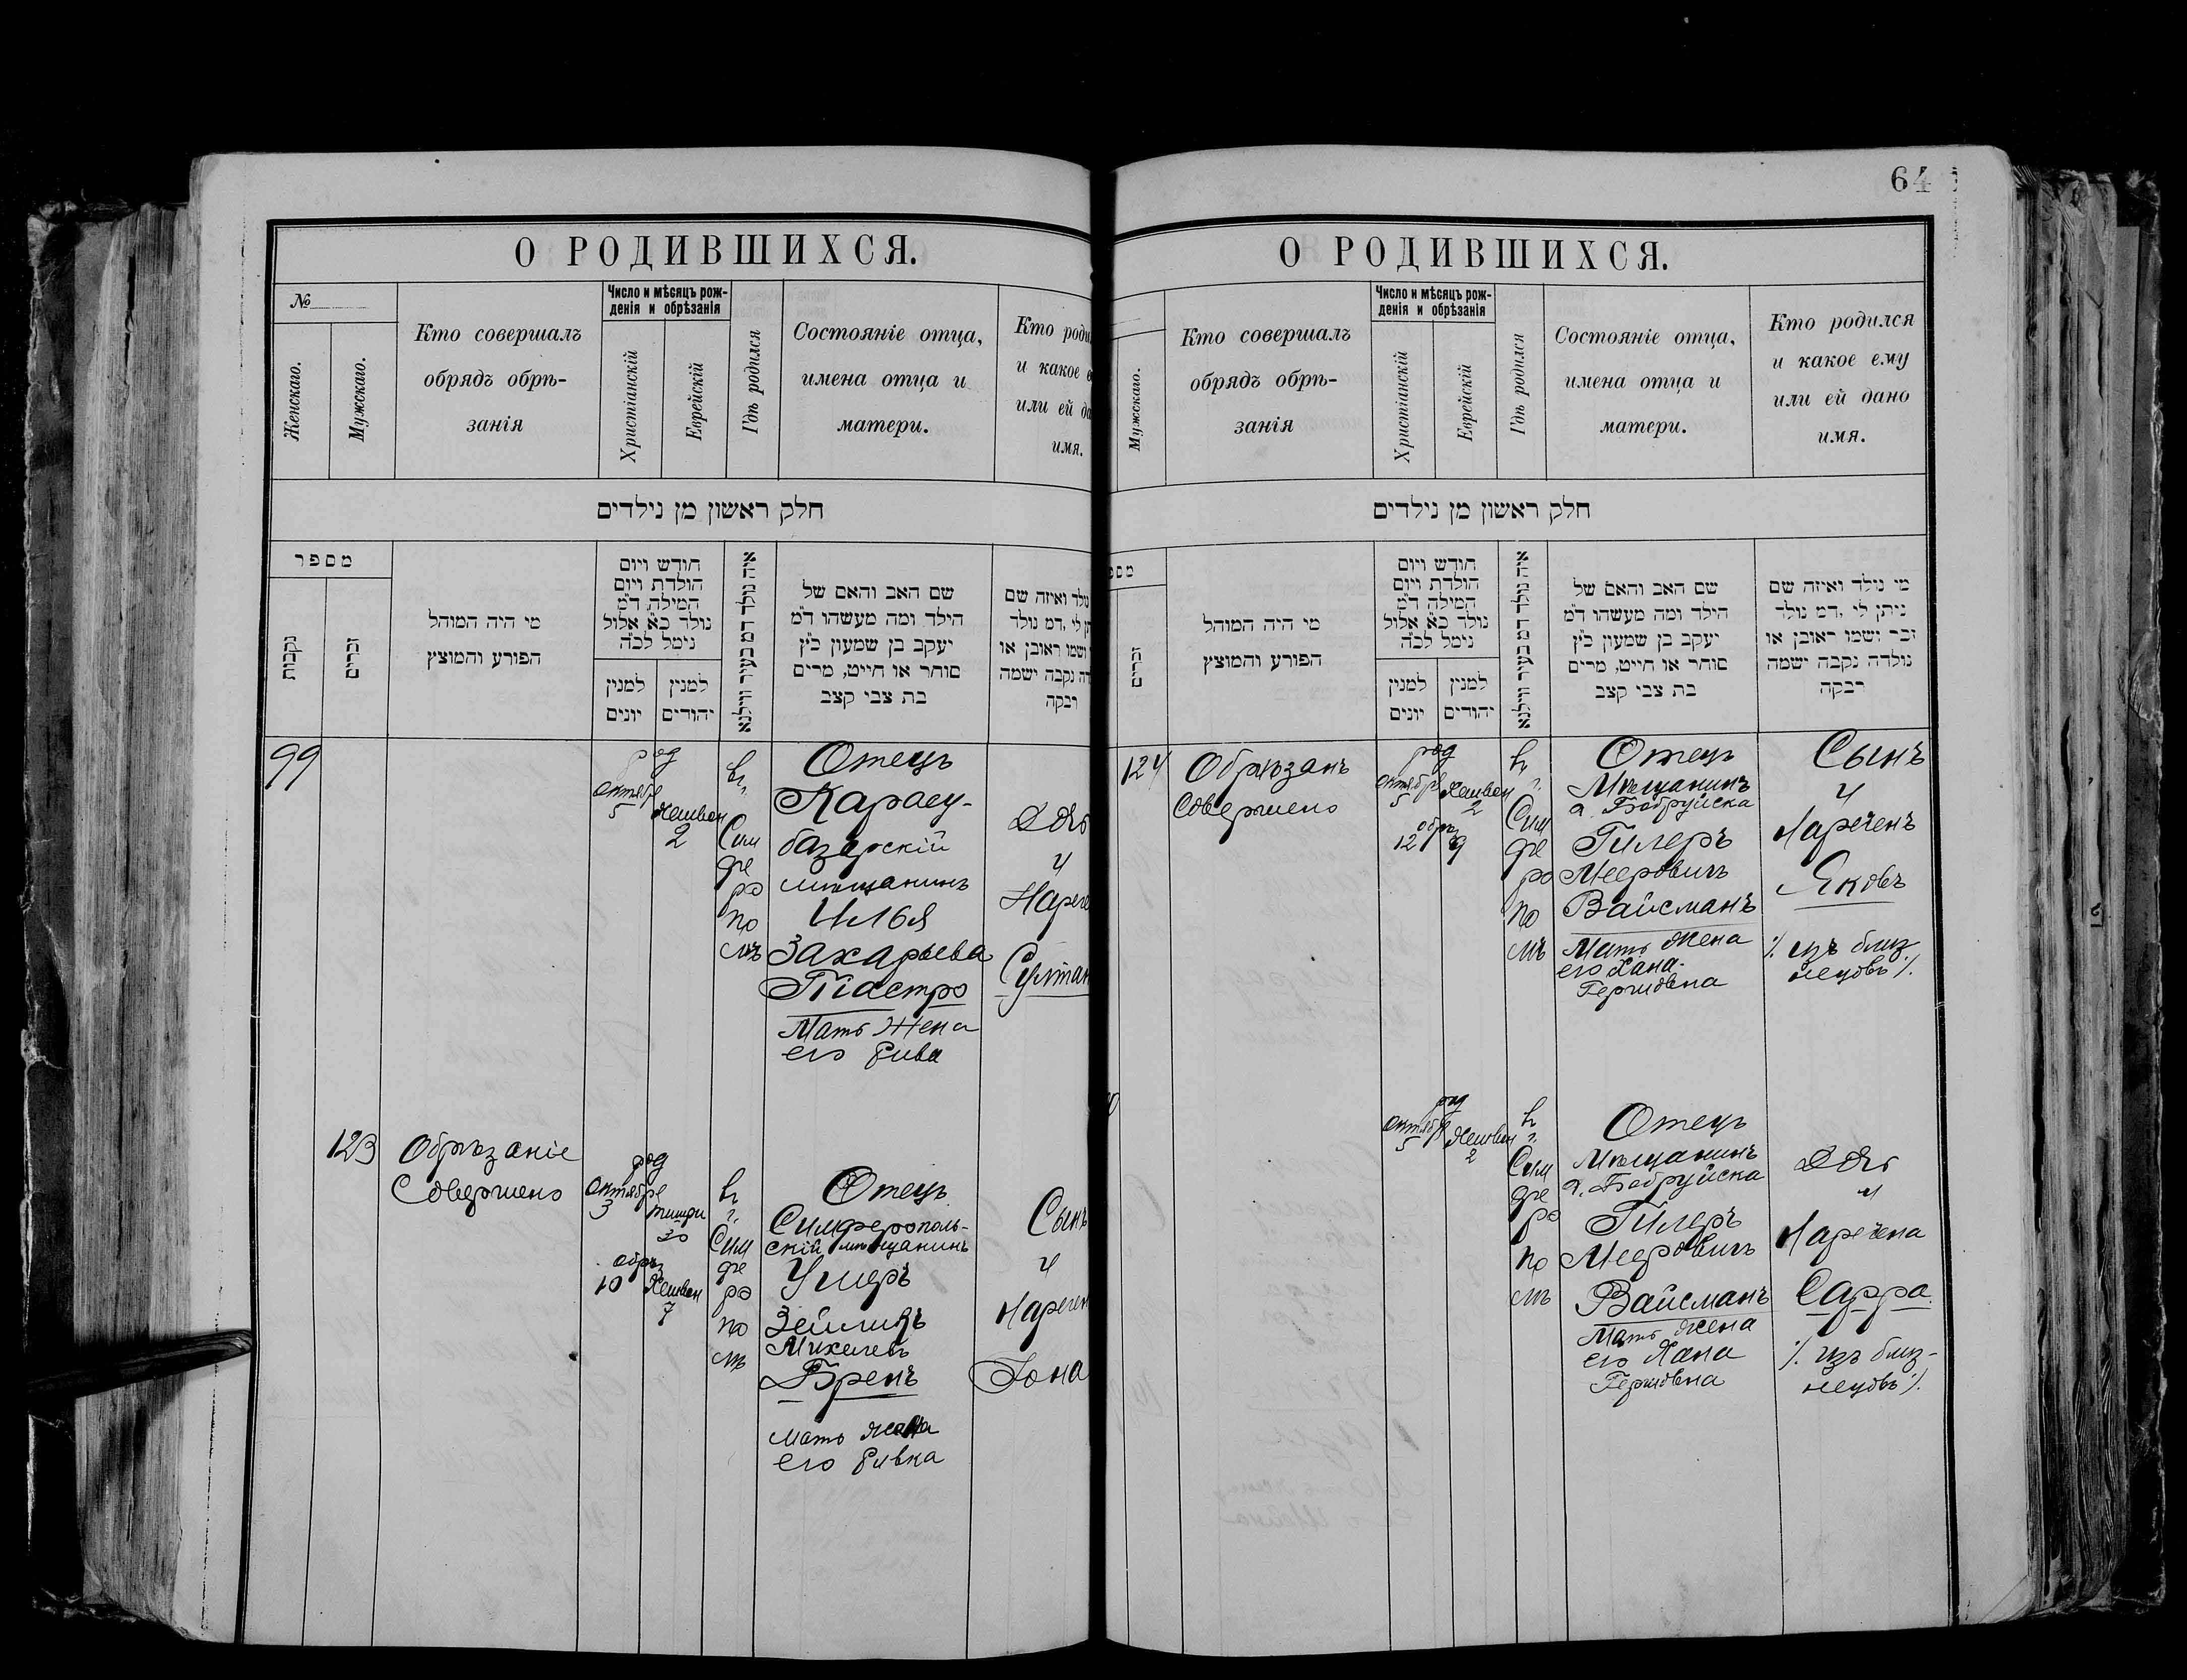 О РОДИВШИХСЯ.
№
Женскаго.
Мужскаго.
Кто совершалъ
обрядъ обрѣ-
занія
Число и мѣсяцъ рож-
денія и обрѣзанія
Христіанскій
Еврейскій
Гдѣ родился
Состояніе отца,
имена отца и
матери.
Кто роди
и какое е
или ей да
имя.
חלק ראשון מן נילדים
מספר
נקבות
זכרים
מי היה המוהל
הפורע והמוצץ
חודש ויום
הולדת ויום
המילה ד״מ
נולד כ״א אלול
נימל לכ״ה
למנין
יונים
למנין
יהודים
איה נולד דמ בעיר ווילנא
שם האב והאם של
הילד ומה מעשהו ד״מ
יעקב בן שמעון כ״ץ
סוחר או חייט, מרים
בת צבי קצב
נולד ואיזה שם
תן לי ,דמ נולד
ושמו ראובן או
דה נקבה ישמה
רבקה
99
род
октябре
5
Хешвон
2
в
г.
Сим
фе
ро
по
лѣ
Отецъ
Карасу-
базарскій
мѣщанинъ
Илья
Захарьева
Піастро
Мать жена
его Рива
Дочь
и
Нарече
Султан
123
Обрѣзаніе
Совершено
род
октябре
3
тишри
30
обрѣз
10
Хешвон
7
в
г.
Сим
фе
ро
по
лѣ
Отецъ
Симферополь-
скій мѣщанинъ
Ушеръ
Зейликъ
Михелевъ
Бренъ
мать жена
его Ривка
Сынъ
и
Наречен
Іона
64
О РОДИВШИХСЯ.
Мужскаго.
Кто совершалъ
обрядъ обрѣ-
занія
Число и мѣсяцъ рож-
денія и обрѣзанія
Христіанскій
Еврейскій
Гдѣ родился
Состояніе отца,
имена отца и
матери.
Кто родился
и какое ему
или ей дано
имя.
חלק ראשון מן נילדים
מספ
זכרים
מי היה המוהל
הפורע והמוצץ
חודש ויום
הולדת ויום
המילה ד״מ
נולד כ״א אלול
נימל לכ״ה
למנין
יונים
למנין
יהודים
איה נולד דמ בעיר ווילנא
שם האב והאם של
הילד ומה מעשהו ד״מ
יעקב בן שמעון כ״ץ
סוחר או חייט, מרים
בת צבי קצב
מי נילד ואיזה שם
ניתן לי ,דמ נולד
זכר ושמו ראובן או
נולדה נקבה ישמה
רבקה
124
Обрѣзанъ
Совершено
род
октябре
5
Хешвон
2
обрѣз
12
9
в
г.
Сим
фе
ро
по
лѣ
Отецъ
Мѣщанинъ
г. Бобруйска
Гилеръ
Мееровичъ
Вайсманъ
Мать жена
его Хана-
Гершовна
Сынъ
и
Нареченъ
Яковъ
./. изъ близ-
нецовъ ./.
род
октябре
5
Хешвон
2
в
г.
Сим
фе
ро
по
лѣ
Отецъ
Мѣщанинъ
г. Бобруйска
Гилеръ
Мееровичъ
Вайсманъ
Мать жена
его Хана
Гершовна
Дочь
и
Наречена
Сарра
./. изъ близ-
нецовъ ./.